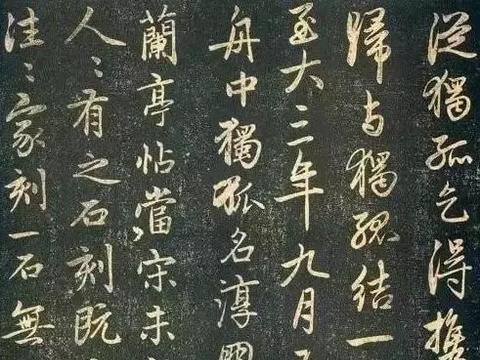 从獨孤乞得攜
歸与獨孤結一
至大三年九月
舟中獨孤名淳朋
蘭亭帖當宋未
人〻有之石刻既
往〻家刻一石無